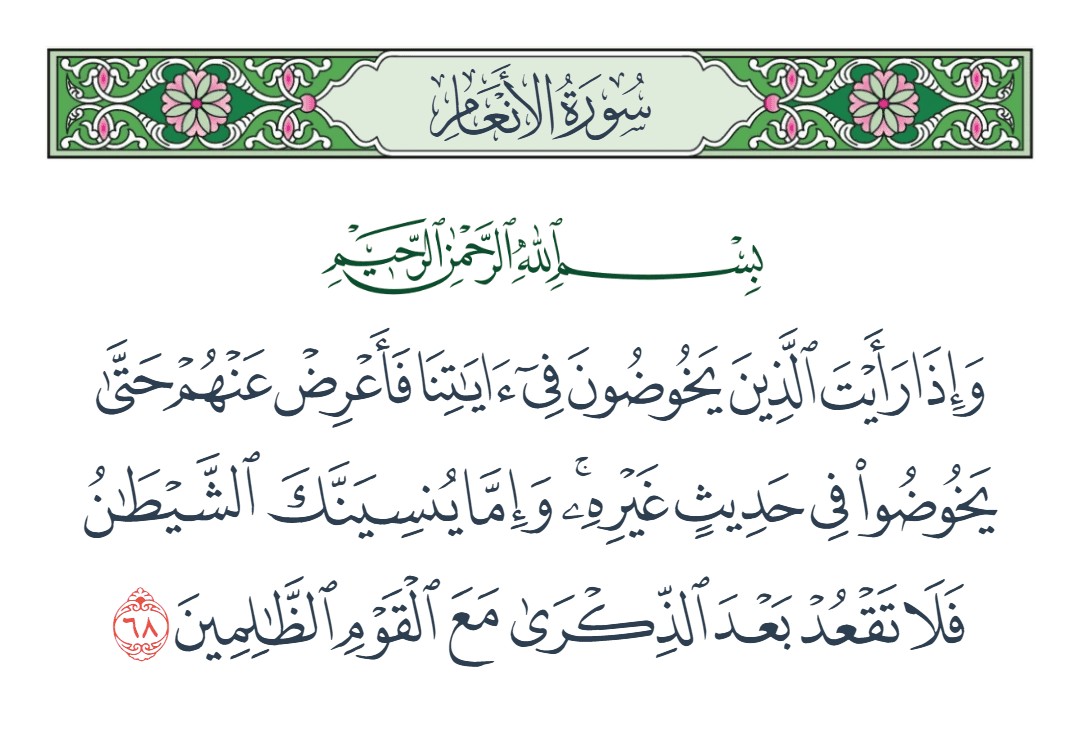 سُورَةُ الأَنْعَامِ
بِسْمِ ٱللَّهِ ٱلرَّحْمَٰنِ ٱلرَّحِيمِ
وَإِذَا رَأَيْتَ ٱلَّذِينَ يَخُوضُونَ فِىٓ ءَايَٰتِنَا فَأَعْرِضْ عَنْهُمْ حَتَّىٰ
يَخُوضُوا۟ فِى حَدِيثٍ غَيْرِهِۦ ۚ وَإِمَّا يُنسِيَنَّكَ ٱلشَّيْطَٰنُ
فَلَا تَقْعُدْ بَعْدَ ٱلذِّكْرَىٰ مَعَ ٱلْقَوْمِ ٱلظَّٰلِمِينَ ٦٨